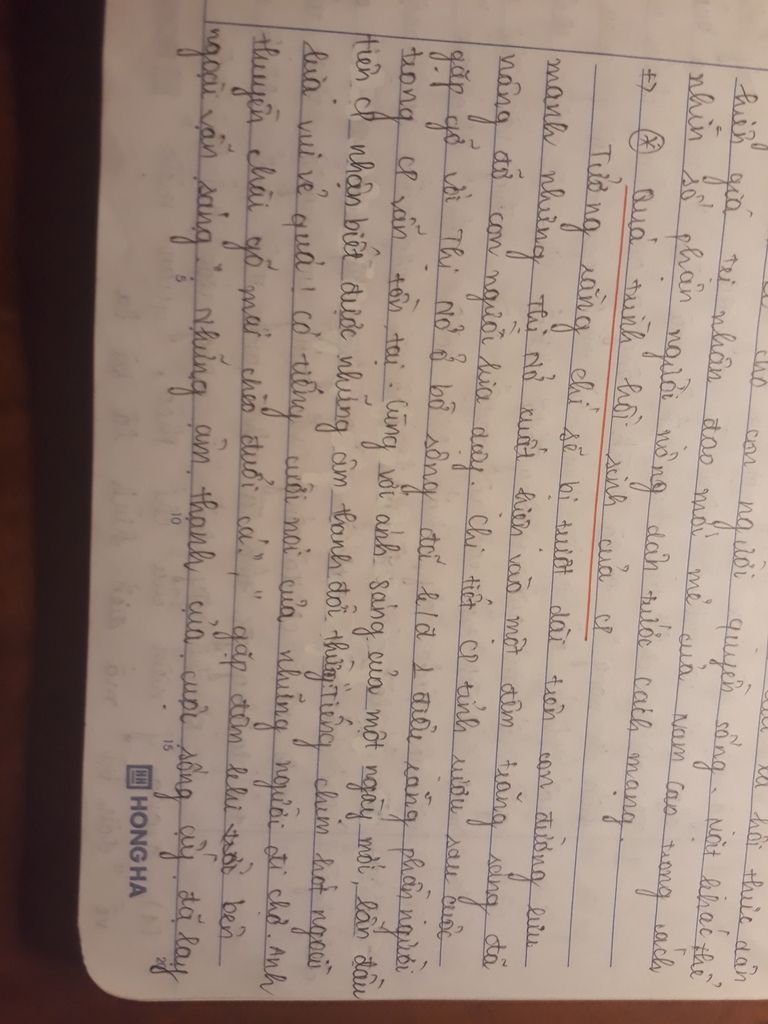 cho con người quyền sống. Nét khác thể
hiện giá trị nhân đạo mới mẻ của Nam Cao trong cách
nhìn số phận người nông dân trước cách mạng.
=> * Quá trình hồi sinh của CP
Tưởng rằng chỉ sẽ bị trượt dài trên con đường lưu
manh nhưng Thị Nở xuất hiện vào một đêm trăng sáng đã
nâng đỡ con người kia dậy. Chi tiết CP tỉnh rượu sau cuộc
gặp gỡ với Thị Nở ở bờ sông đã k/đ 1 điều rằng phần người
trong CP vẫn tồn tại. Cùng với ánh sáng của một ngày mới, lần đầu
tiên CP nhận biết được những âm thanh đời thường "Tiếng chim hót ngoài
kia vui vẻ quá! Có tiếng cười nói của những người đi chợ. Anh
thuyền chài gõ mái chèo đuổi cá.", " gặp đêm khi bên
ngoài vẫn sáng". Những âm thanh của cuộc sống ấy đã lay
5 10 15 20
HONG HA